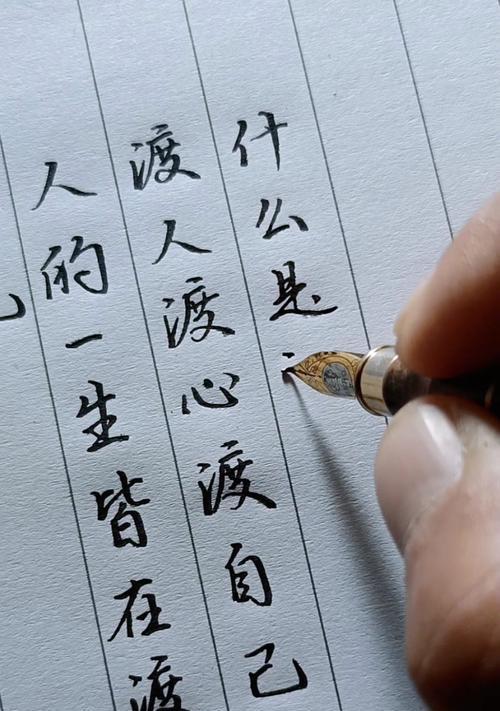 什么是：
渡人渡心渡自己
人的一生皆在渡